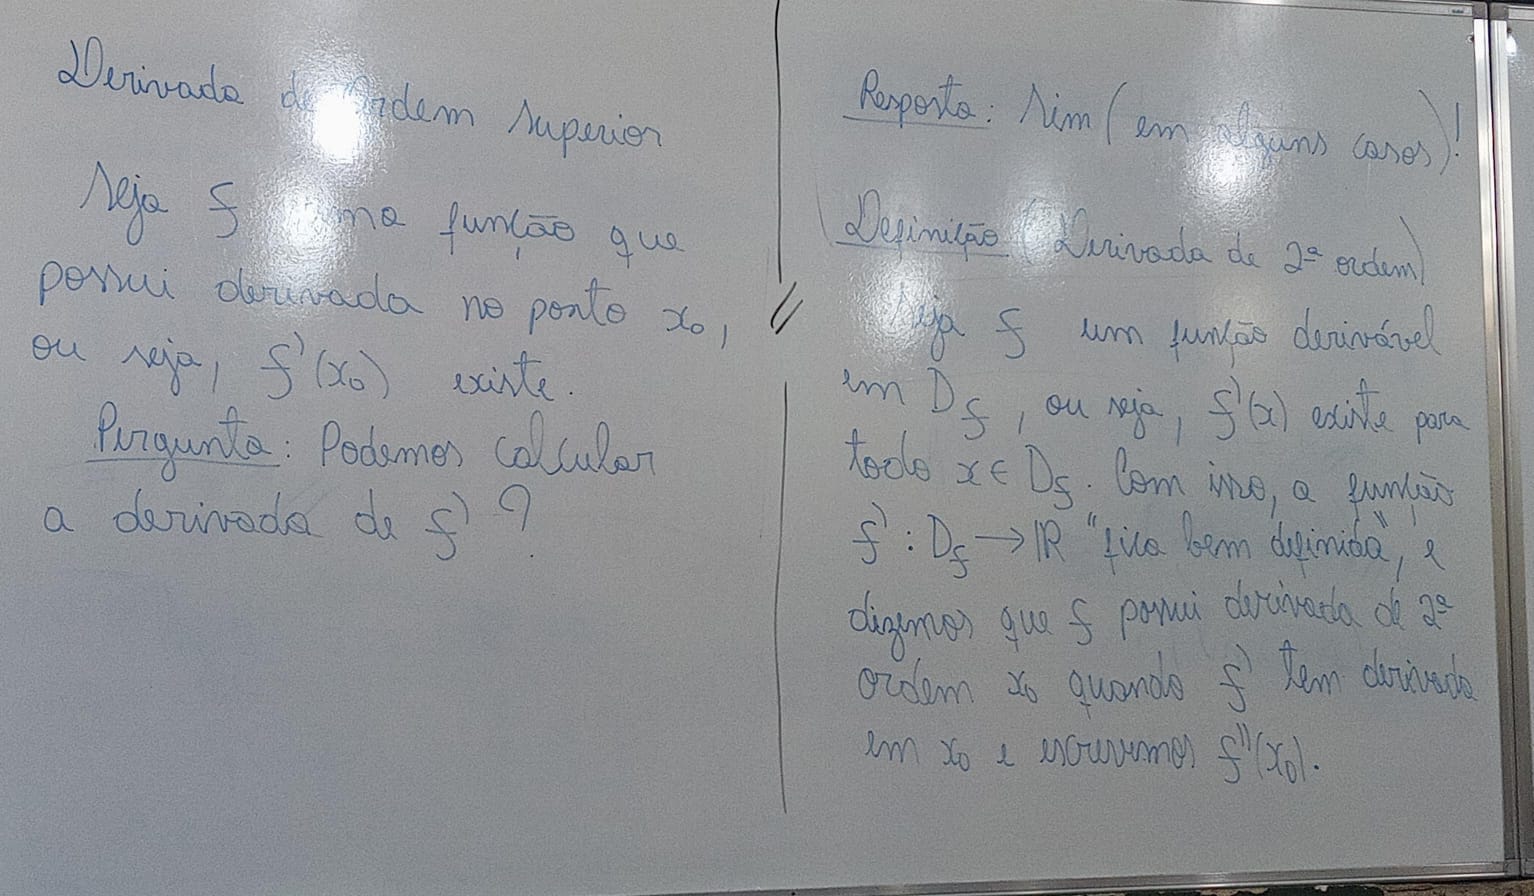 Derivada de Ordem Superior
Seja f uma função que
possui derivada no ponto x₀,
ou seja, f'(x₀) existe.
Pergunta: Podemos calcular
a derivada de f'?
Resposta: Sim (em alguns casos)!
Definição (Derivada de 2ª ordem)
Seja f um função derivável
em D_f, ou seja, f'(x) existe para
todo x ∈ D_f. Com isso, a função
f': D_f → ℝ "fica bem definida", e
dizemos que f possui derivada de 2ª
ordem x₀ quando f' tem derivada
em x₀ e escrevemos f''(x₀).